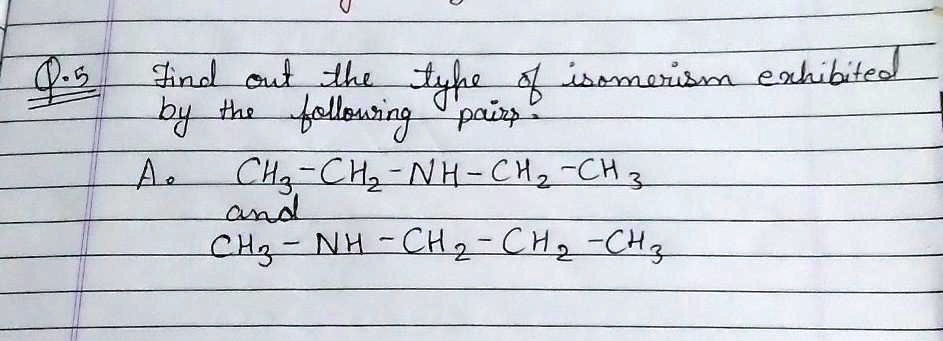 Q.5 Find out the type of isomerism exhibited
by the following pairs.
A. CH₃-CH₂-NH-CH₂-CH₃
and
CH₃-NH-CH₂-CH₂-CH₃